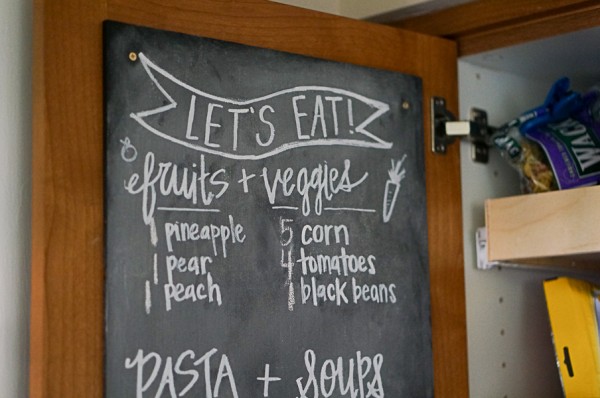 LET'S EAT!
fruits + veggies
1 pineapple
1 pear
1 peach
5 corn
4 tomatoes
1 black beans
PASTA + SOUPS